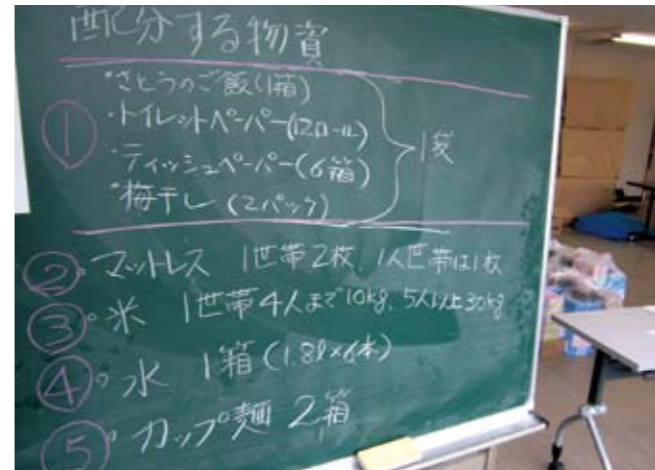 配分する物資
① ・さとうのご飯(1箱)
・トイレットペーパー(12ロール)
・ティッシュペーパー(6箱)
・梅干し(2パック)
1袋
②・マットレス 1世帯2枚、1人世帯は1枚
③・米 1世帯4人まで10kg、5人以上30kg
④・水 1箱(1.8ℓ×6本)
⑤・カップ麺 2箱